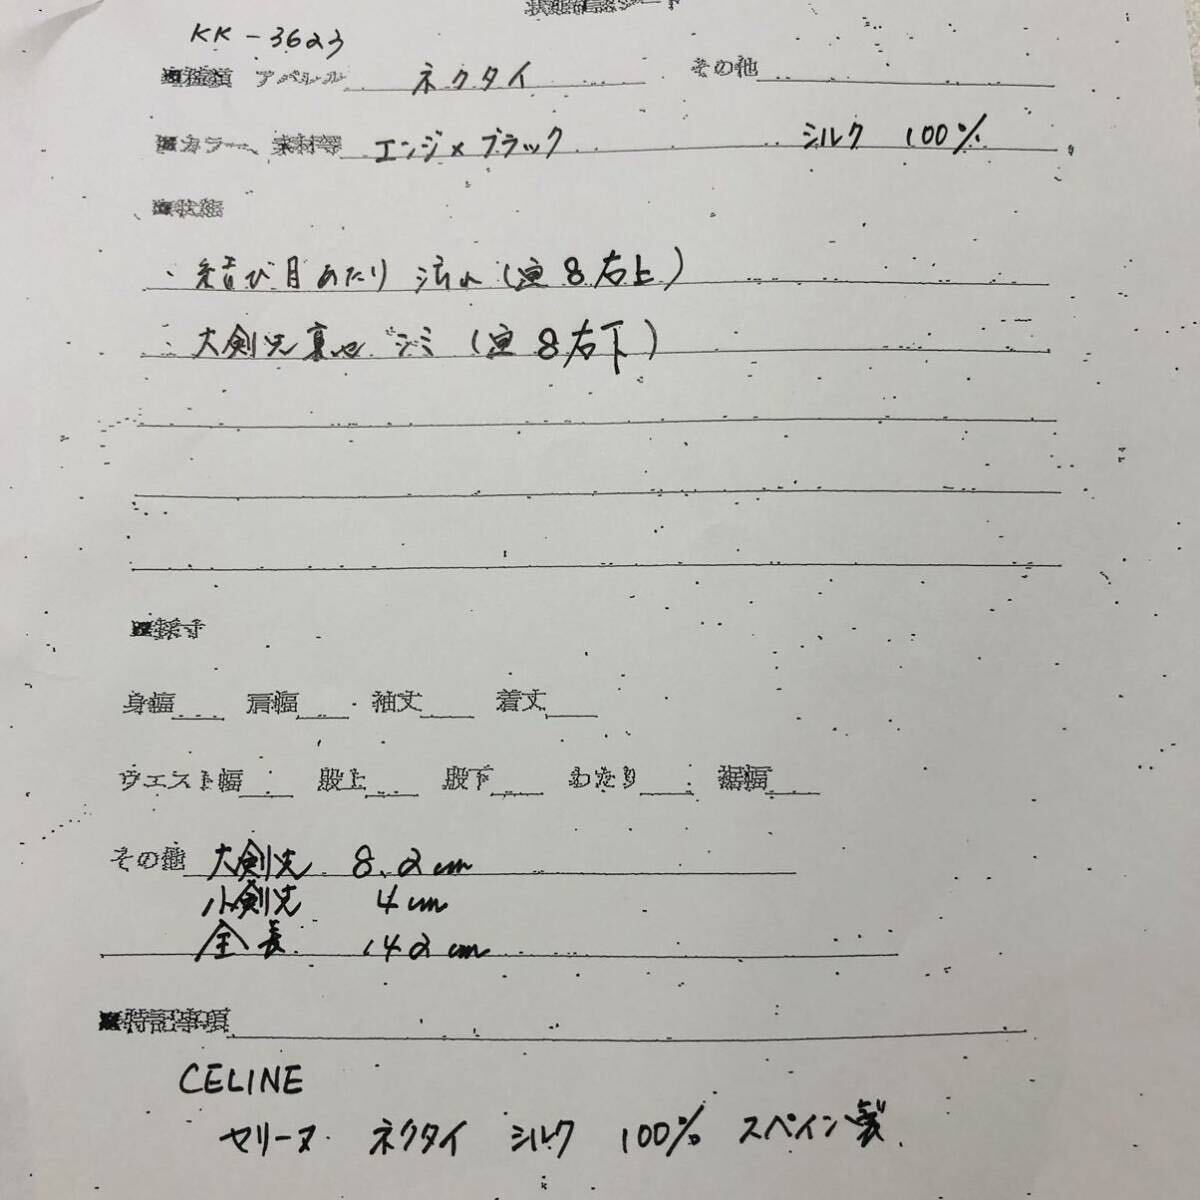 状態確認シート
KK-3623
■種類 アパレル ネクタイ その他
■カラー、素材等 エンジ×ブラック シルク 100%
■状態
・結び目あたり 汚れ(画8右上)
・大剣先裏地 シミ(画8右下)
■採寸
身幅 肩幅 袖丈 着丈
ウエスト幅 股上 股下 わたり 裾幅
その他 大剣先 8.2cm
小剣先 4cm
全長 142cm
■特記事項
CELINE
セリーヌ ネクタイ シルク 100% スペイン製